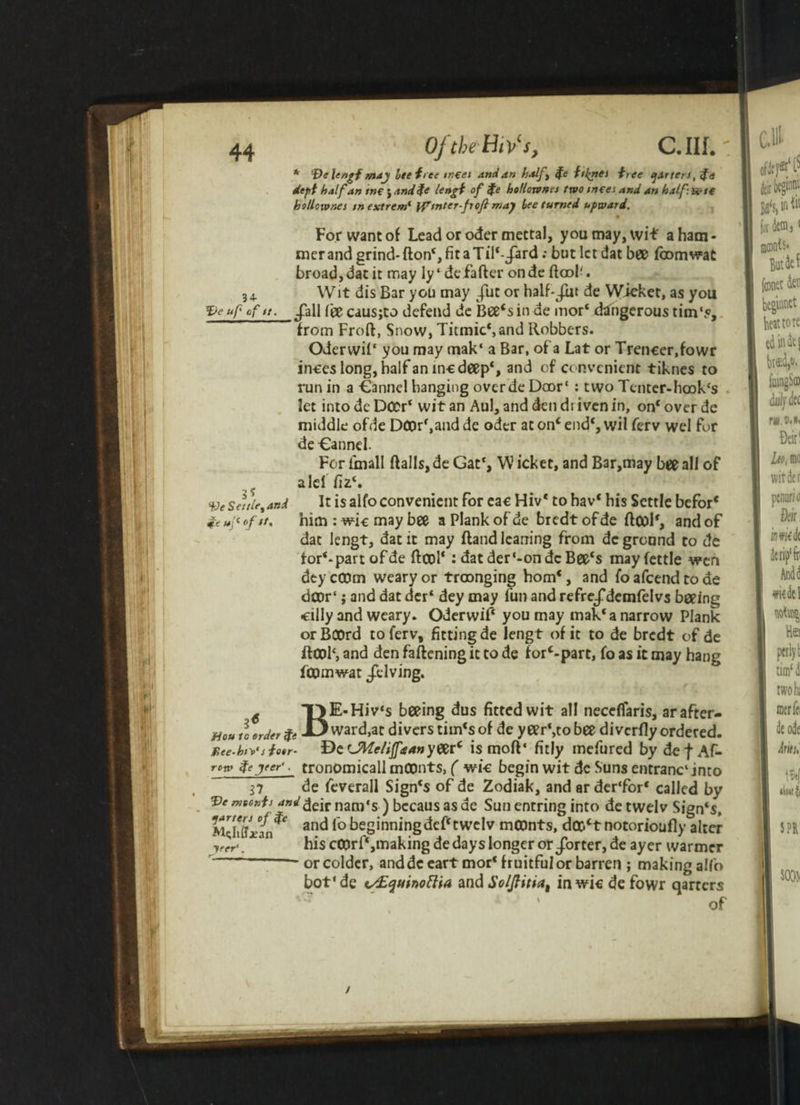 44 Of the Hiv's, C.III.
* De lengt may bee tree inces and an half, de tiknes tree qarters, de
dept half an inc; and de lengt of de hollownes two inces and an half: wic
hollownes in extrem' Winter-froſt may bee turned upward.
For want of Lead or oder mettal, you may, wit a ham-
mer and grind-ſton', fit a Til'-ſard : but let dat bee ſoomwat
broad, dat it may ly' de faſter on de ſtool'.
34
De uſ' of it.
Wit dis Bar you may ſut or half-ſut de Wicket, as you
ſall ſee caus; to defend de Bee's in de mor' dangerous tim's,
from Froſt, Snow, Titmic', and Robbers.
Oderwiſ' you may mak' a Bar, of a Lat or Trencer, fowr
inces long, half an inc deep', and of convenient tiknes to
run in a Cannel hanging over de Door' : two Tenter-hook's
let into de Door' wit an Aul, and den driven in, on' over de
middle of de Door', and de oder at on' end', wil ſerv wel for
de Cannel.
For ſmall ſtalls, de Gat', Wicket, and Bar, may bee all of
a leſ ſiz'.
35
De Settle, and
de uſ' of it.
It is alſo convenient for eac Hiv' to hav' his Settle befor'
him : wic may bee a Plank of de bredt of de ſtool', and of
dat lengt, dat it may ſtand leaning from de ground to de
for'-part of de ſtool' : dat der'-on de Bee's may ſettle wen
dey coom weary or troonging hom', and ſo aſcend to de
door' ; and dat der' dey may ſun and refreſ demſelvs beeing
cilly and weary. Oderwiſ' you may mak' a narrow Plank
or Boord to ſerv, fitting de lengt of it to de bredt of de
ſtool', and den faſtening it to de for'-part, ſo as it may hang
ſoomwat ſelving.
36
Hou to order de
Bee-hiv's toor-
row de yeer'.
BE-Hiv's beeing dus fitted wit all neceſſaris, ar after-
ward, at divers tim's of de yeer', to bee diverſly ordered.
De Meliſſæan yeer' is moſt' fitly meſured by de † Aſ-
tronomicall moonts, ( wic begin wit de Suns entranc' into
37
De moonts and
qarters of de
Meliſſæan
yeer'.
de ſeverall Sign's of de Zodiak, and ar der'for' called by
deir nam's ) becaus as de Sun entring into de twelv Sign's,
and ſo beginning deſ' twelv moonts, doo't notoriouſly alter
his coorſ', making de days longer or ſorter, de ayer warmer
or colder, and de eart mor' fruitful or barren ; making alſo
bot' de Æquinoctia and Solſtitia, in wic de fowr qarters
of